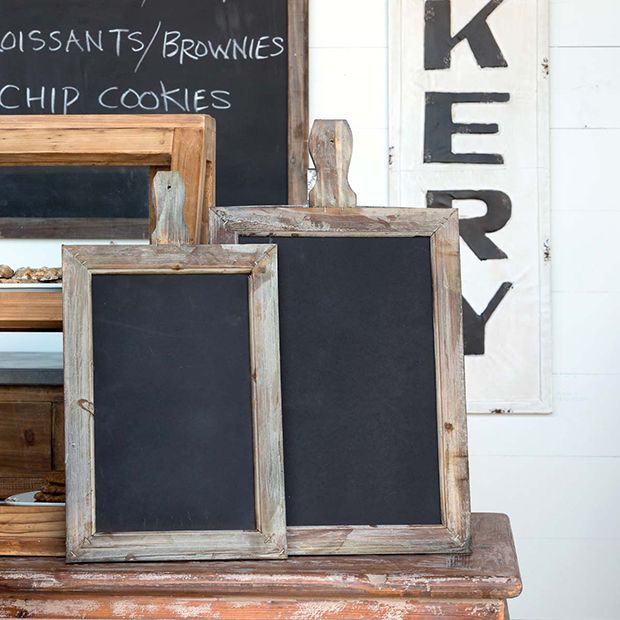 OISSANTS/BROWNIES
CHIP COOKIES
K
E
R
Y